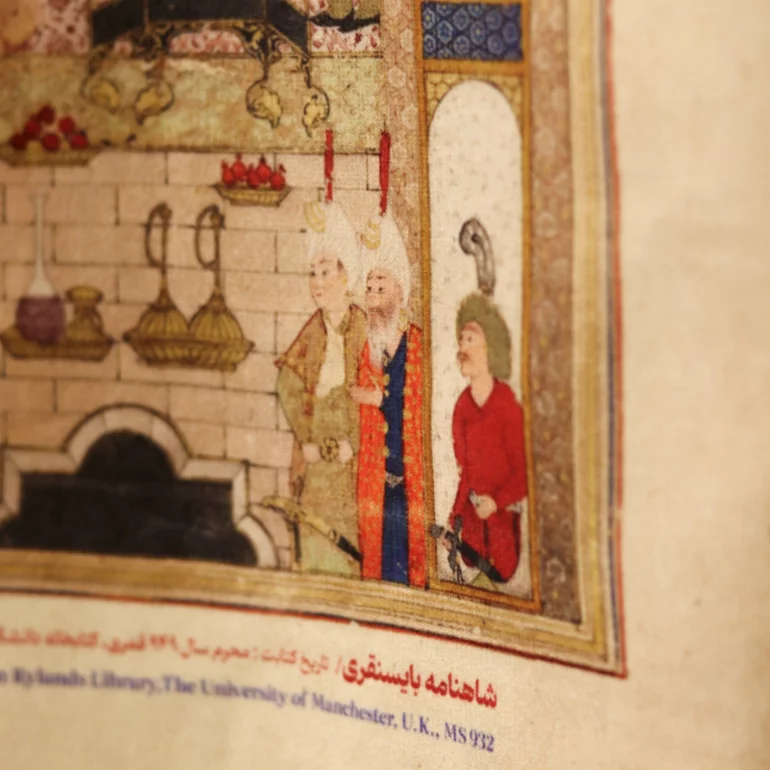 شاهنامه بایسنقری/ تاریخ کتابت : محرم سال ۹۴۹ قمری، کتابخانه
Rylands Library, The University of Manchester, U.K., MS 932